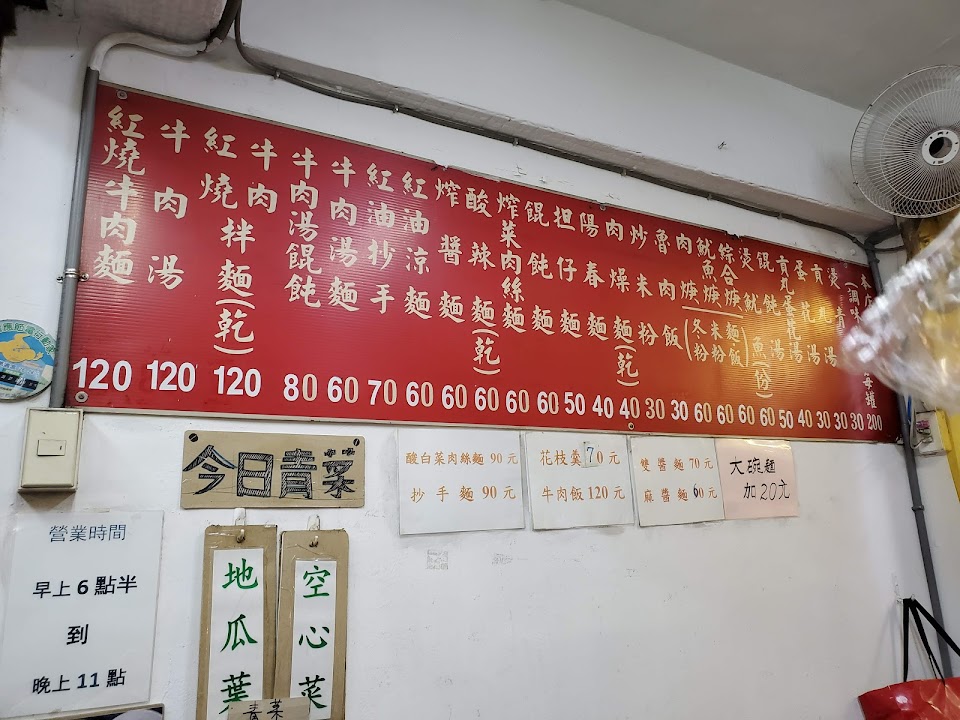 紅燒牛肉麵 120
牛肉湯 120
紅燒牛肉拌麵(乾) 120
牛肉湯餛飩 80
牛肉湯麵 60
紅油抄手 70
紅油涼麵 60
炸醬麵 60
酸辣麵(乾) 60
榨菜肉絲麵 60
餛飩麵 60
担仔麵 50
陽春麵 40
肉燥麵(乾) 40
炒米粉 30
魯肉飯 30
肉焿 60
魷魚焿 60
綜合焿 60
(冬粉米粉麵飯)
燙魷魚(份) 60
餛飩湯 50
貢丸蛋花湯 40
蛋花湯 30
貢丸湯 30
燙青 30
本店(調味 每罐 200
今日青菜
酸白菜肉絲麵 90元
抄手麵 90元
花枝羹 70元
牛肉飯 120元
雙醬麵 70元
麻醬麵 60元
大碗麵
加20元
營業時間
早上 6 點半
到
晚上 11 點
地瓜葉
空心菜
青菜